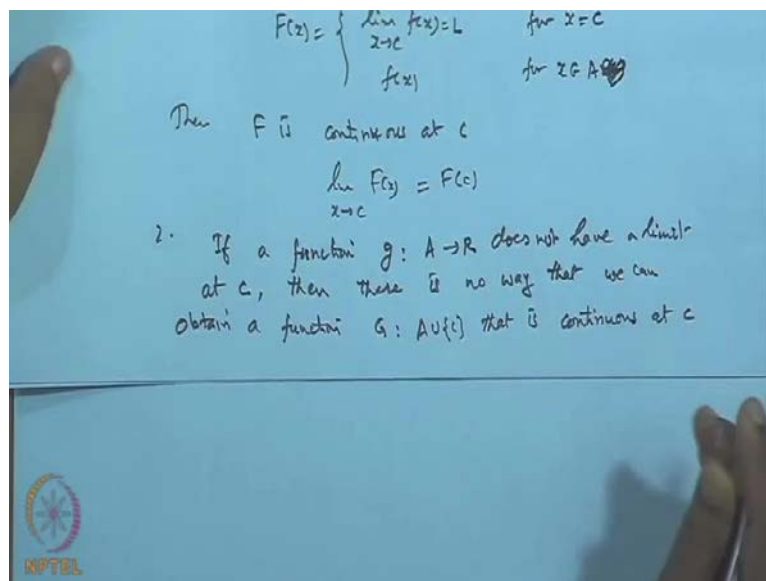 F(x) = { lim x→c f(x) = L for x = c
f(x) for x ∈ A
Then F is continuous at c
lim x→c F(x) = F(c)
2. If a function g : A → R does not have a limit
at c, then there is no way that we can
obtain a function G : A∪{c} that is continuous at c
NPTEL